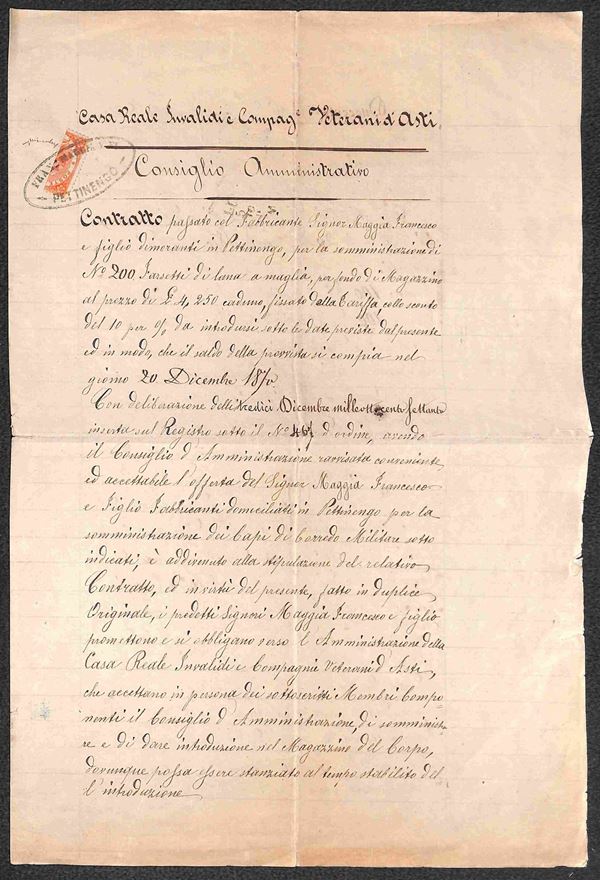 Casa Reale Invalidi e Compag.e Veterani d'Asti
FRAN. MAGGIA
PETTINENGO
Consiglio Amministrativo
Contratto passato col Fabbricante Signor Maggia Francesco
e figlio dimoranti in Pettinengo, per la somministrazione di
No 200 Farsetti di lana a maglia, per fondo di Magazzino
al prezzo di £ 4,250 caduno, fissato dalla Tariffa, collo sconto
del 10 per % da introdursi sotto le date previste dal presente
ed in modo, che il saldo della provvista si compia nel
giorno 20 Dicembre 1870
Con deliberazione delli tredici Dicembre milleottocento settanta
inserta sul Registro sotto il No 467 d'ordine, avendo
il Consiglio d'Amministrazione ravvisata conveniente,
ed accettabile l'offerta del Signor Maggia Francesco
e Figlio Fabbricanti domiciliati in Pettinengo per la
somministrazione dei Capi di Corredo Militare sotto
indicati, è addivenuto alla stipulazione del relativo
Contratto, ed in virtù del presente, fatto in duplice
Originale, i predetti Signori Maggia Francesco e figlio
promettono e si obbligano verso l'Amministrazione della
Casa Reale Invalidi e Compagnie Veterani d'Asti,
che accettano in persona dei sottoscritti Membri Compo-
nenti il Consiglio d'Amministrazione, di somministra-
re e di dare introduzione nel Magazzino del Corpo,
dovunque possa essere stanziato al tempo stabilito del
l'introduzione